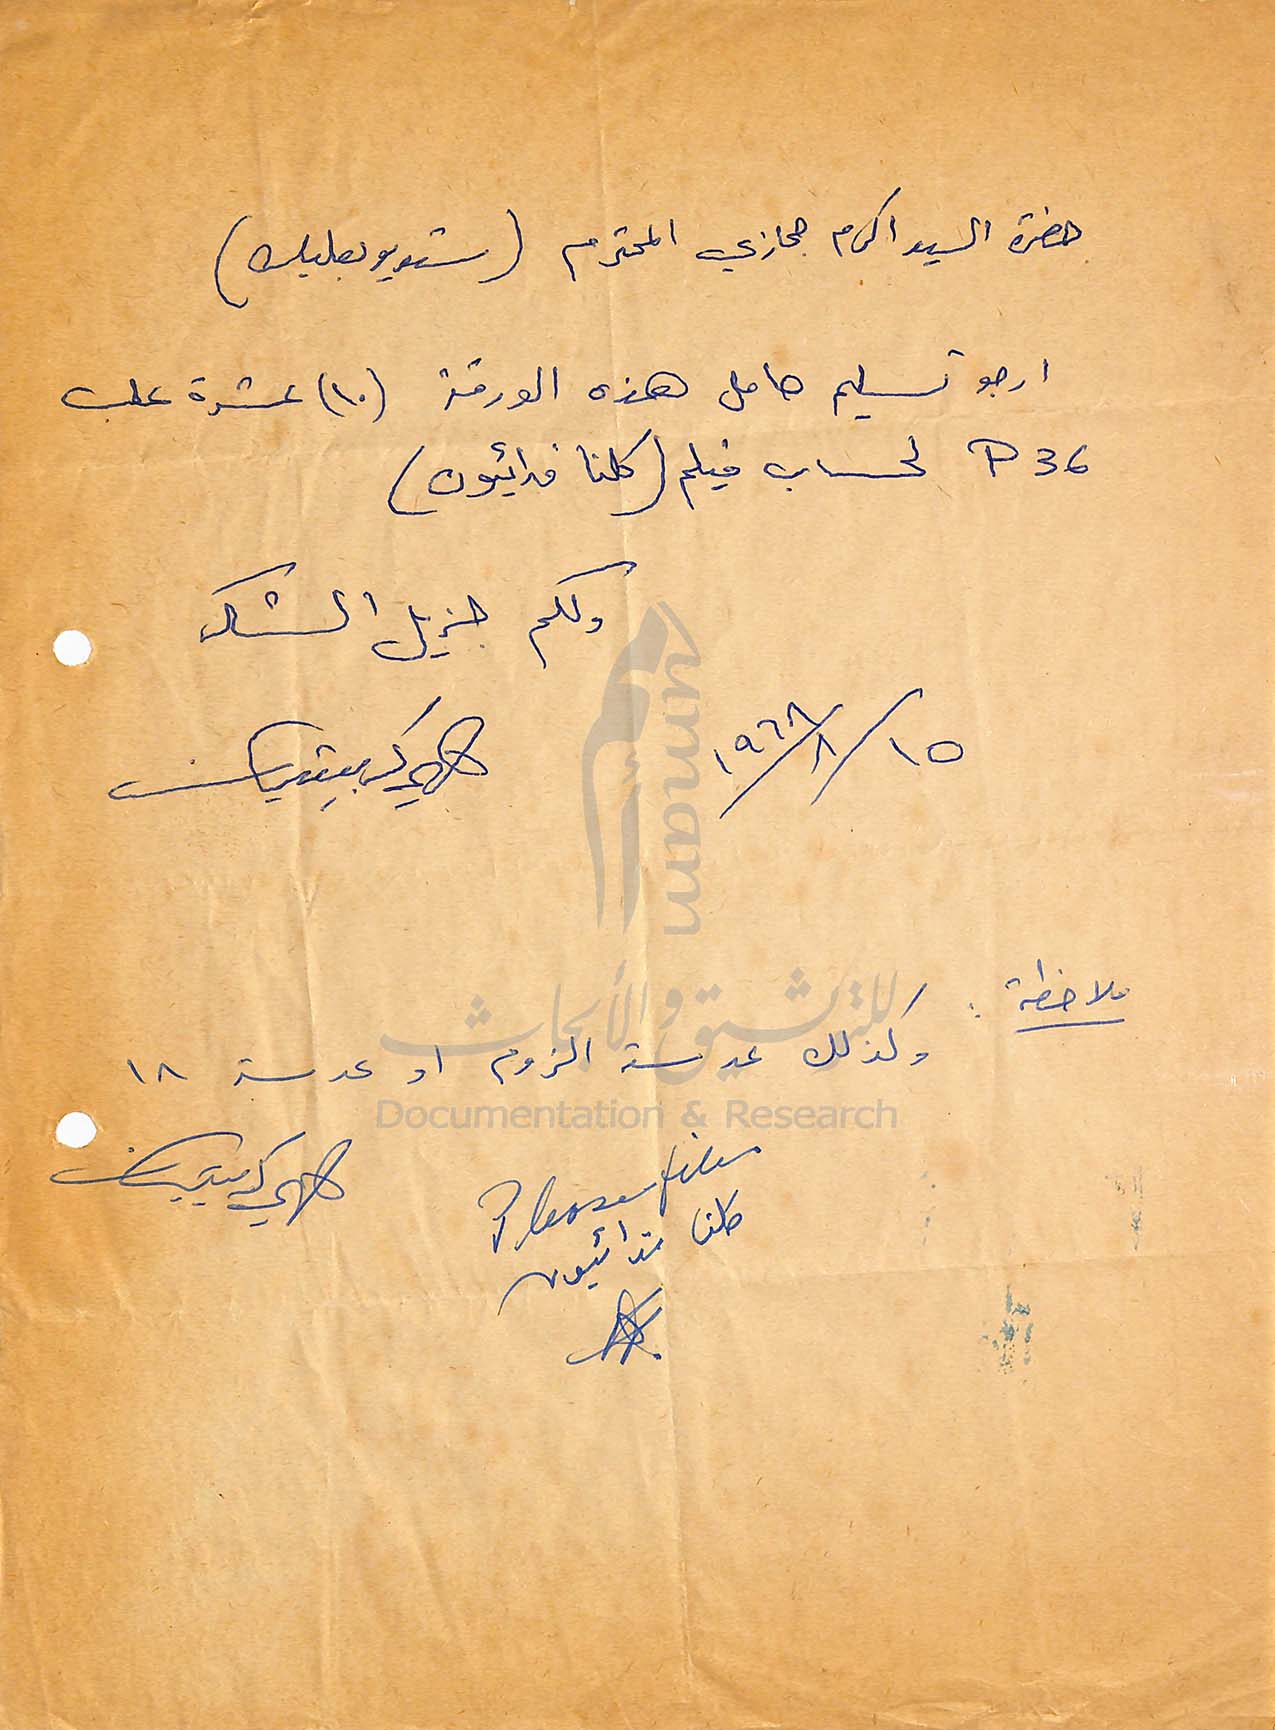 حضرة السيد اكرم حجازي المحترم (ستديو بعلبك)
ارجو تسليم حامل هذه الورقة (١٠) عشرة علب
P 36 لحساب فيلم (كلنا فدائيون)
ولكم جزيل الشكر
١٥/٨/١٩٦٨
ملاحظة :
وكذلك عدسة الزوم او عدسة ١٨
Please
كلنا فدائيون
umam
للتوثيق والأبحاث
Documentation & Research